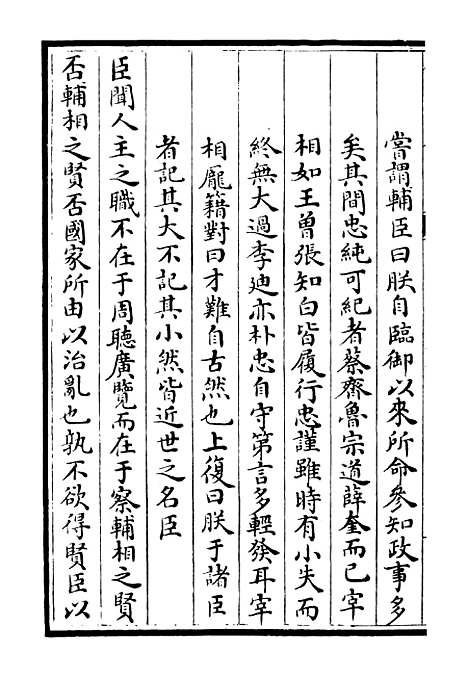 嘗謂輔臣曰朕自臨御以來所命參知政事多
矣其間忠純可紀者蔡齊魯宗道薛奎而已宰
相如王曾張知白皆履行忠謹雖時有小失而
終無大過李迪亦朴忠自守第言多輕發耳宰
相龐籍對曰才難自古然也上復曰朕于諸臣
者記其大不記其小然皆近世之名臣
臣聞人主之職不在于周聽廣覽而在于察輔相之賢
否輔相之賢否國家所由以治亂也孰不欲得賢臣以